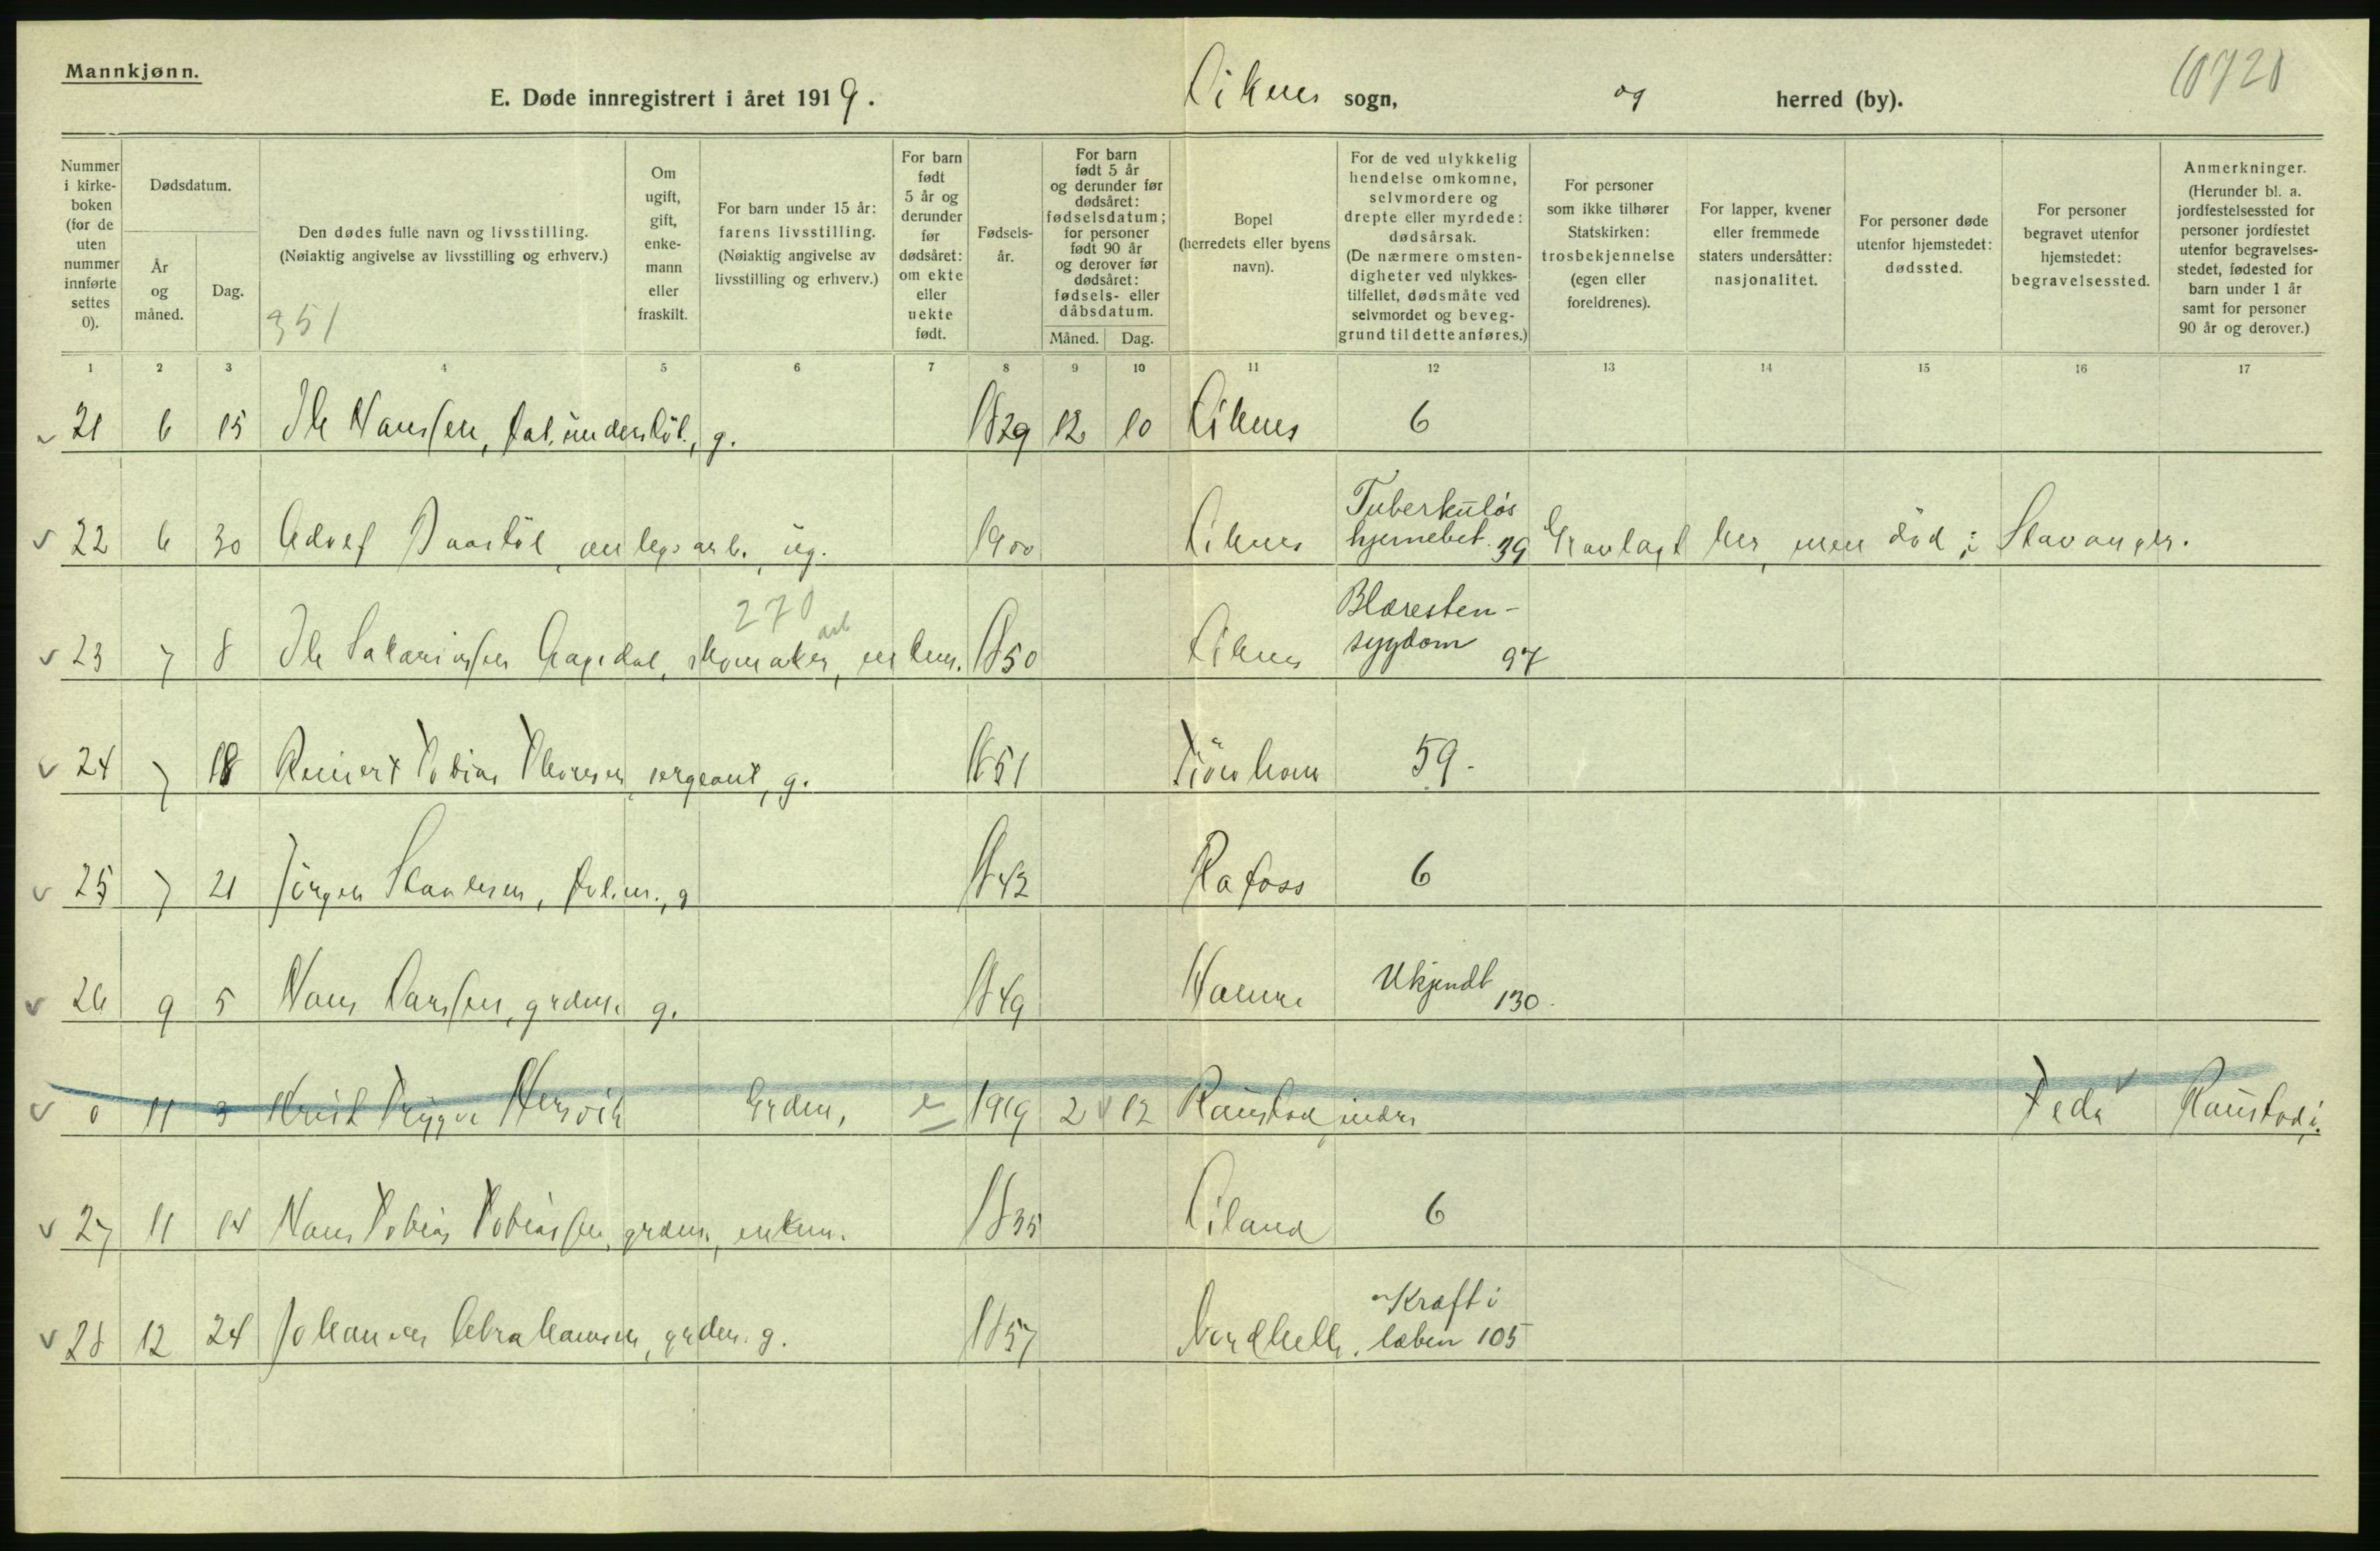 Mannkjønn.
E. Døde innregistrert i året 1919. Liknes sogn, og herred (by).
Nummer i kirkeboken (for de uten nummer innførte settes 0).
Dødsdatum.
År og måned.
Dag.
Den dødes fulle navn og livsstilling.
(Nøiaktig angivelse av livsstilling og erhverv.)
351
Om ugift, gift, enkemann eller fraskilt.
For barn under 15 år: farens livsstilling.
(Nøiaktig angivelse av livsstilling og erhverv.)
For barn født 5 år og derunder før dødsåret: om ekte eller uekte født.
Fødselsår.
For barn født 5 år og derunder før dødsåret: fødselsdatum; for personer født 90 år og derover før dødsåret: fødsels- eller dåbsdatum.
Måned. Dag.
Bopel (herredets eller byens navn).
For de ved ulykkelig hendelse omkomne, selvmordere og drepte eller myrdede: dødsårsak.
(De nærmere omstendigheter ved ulykkestilfellet, dødsmåte ved selvmordet og beveggrund til dette anføres.)
For personer som ikke tilhører Statskirken: trosbekjennelse (egen eller foreldrenes).
For lapper, kvener eller fremmede staters undersåtter: nasjonalitet.
For personer døde utenfor hjemstedet: dødssted.
For personer begravet utenfor hjemstedet: begravelsessted.
Anmerkninger.
(Herunder bl. a. jordfestelsessted for personer jordfestet utenfor begravelsesstedet, fødested for barn under 1 år samt for personer 90 år og derover.)
1 2 3 4 5 6 7 8 9 10 11 12 13 14 15 16 17
21 6 15 Ole Hanssen, fat. understøt., g. 1829 12 10 Liknes 6
22 6 30 Adolf anlegsarb., ug. 1900 Liknes Tuberkuløs hjernebet. 39 Gravlagt her, men død i Stavanger.
270
23 7 8 Ole Sakariassen skomaker, enkem. 1850 Liknes Blæresten-sygdom 97
24 7 18 Reinert Tobias sergeant, g. 1851 59.
25 7 21 Jørgen g 1842 Rafoss 6
26 9 5 Hans Larssen, grdm. g. 1849 Ukjendt 130
0 11 3 Trygve Grdm. e 1919 2 12 Raustad indre Feda Raustad i.
27 11 14 Hans Tobias Tobiassen, grdm., enkm. 1835 Eiland 6
28 12 24 Johannes Abrahamsen, grdm. g. 1857 Nordhelle. Kræft i læben 105